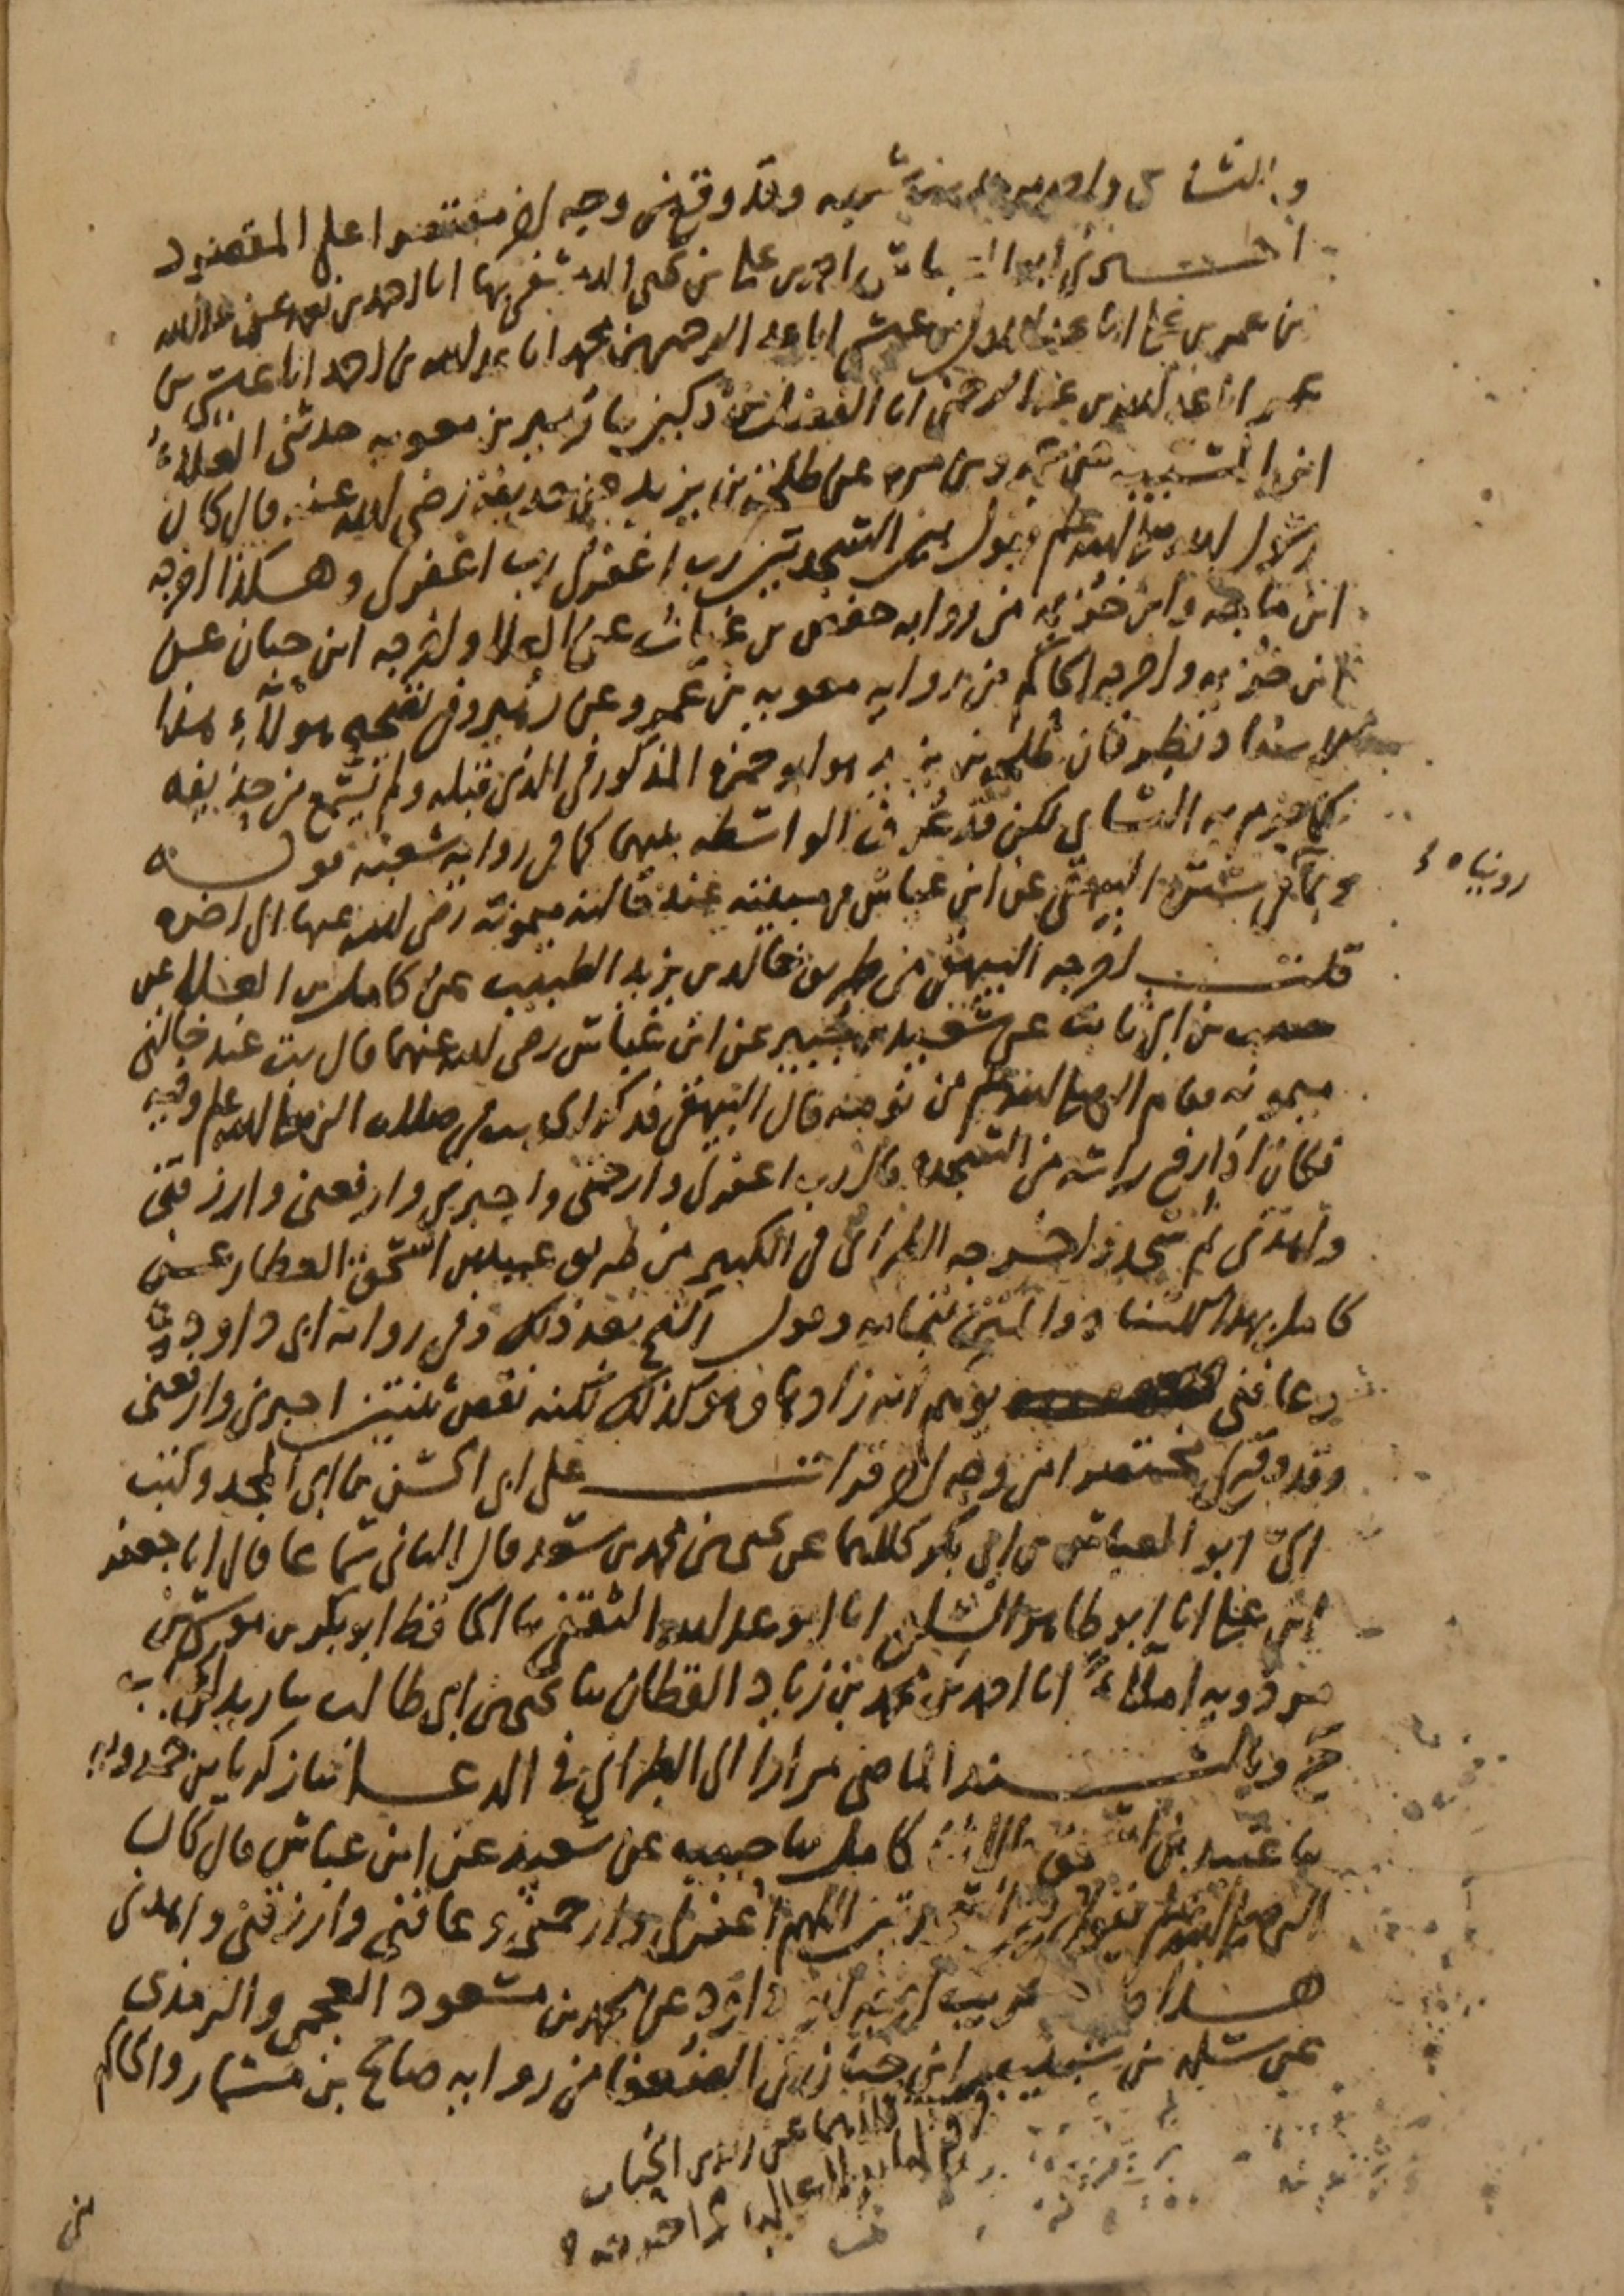 والنسائي وقد وقع من وجه آخر مقتصرا على المقصود
اخبرني ابو العباس احمد بن علي بن يحيى انا احمد بن نعمة عن عبد الله
بن عمر بن علي انا عبد الاول بن عيسى انا عبد الرحمن بن محمد انا عبد الله بن احمد انا عيسى بن
عمر انا عبد الله بن عبد الرحمن انا الفضل بن دكين نا زهير بن معويه حدثني العلاء
ابن المسيب عن عمرو بن مره عن طلحة بن يزيد عن حذيفة رضي الله عنه قال كان
رسول الله صلى الله عليه وسلم يقول بين السجدتين رب اغفرلي رب اغفرلي وهكذا اخرجه
ابن ماجه وابن خزيمه من روايه حفص بن غياث عن العلا واخرجه ابن حبان عن
ابن خزيمه واخرجه الحاكم من روايه معويه بن عمرو عن زهير وفي تصحيح هولاء هذا
الاسناد نظر فان طلحه بن يزيد هو ابو حمزه المذكور في الذي قبله ولم يسمع من حذيفه
كما جزم به النساي لكن قد عرف الواسطه بينهما كما في روايه شعبه قوله
روينا ه
وبما في سنن البيهقي عن ابن عباس في مبيته عند خالته ميمونة رضي الله عنها الى اخره
قلت اخرجه البيهقي من طريق خالد بن يزيد الطبيب عن كامل بن العلا عن
حبيب بن ابي ثابت عن سعيد بن جبير عن ابن عباس رضي الله عنهما قال بت عند خالتي
ميمونه فقام النبي صلى الله عليه وسلم من نومه قال البيهقي فذكر الحديث في صلاه النبي صلى الله عليه وسلم وفيه
فكان اذا رفع راسه من السجده قال رب اغفرلي وارحمني واجبرني وارفعني وارزقني
واهدني ثم سجد واخرجه الطبراني في الكبير من طريق عبيد بن اسحق العطار عن
كامل بهذا الاسناد والمتن بتمامه وقول الشيخ بعد ذلك وفي روايه ابي داود
وعافني يوهم انه زادها وهو كذلك لكنه نقص ثنتين اجبرني وارفعني
وقد وقع لي مختصرا من وجه اخر قرات على ابي الحسن بن ابي المجد وكتب
الي ابو العباس بن ابي بكر كلاهما عن يحيى بن محمد بن سعد قال الثاني سماعا قال انا جعفر
ابن علي انا ابو طاهر السلفي انا ابو عبد الله الثقفي نا الحافظ ابو بكر بن موسى بن
مردويه املاء انا احمد بن محمد بن زياد القطان نا يحيى بن ابي طالب نا زيد بن
ح وبالسند الماضي مرارا الى الطبراني في الدعا نا زكريا بن حمدويه
نا عبيد بن اسحق نا كامل نا حبيب عن سعيد عن ابن عباس قال كان
النبي صلى الله عليه وسلم يقول بين السجدتين اللهم اغفرلي وارحمني وعافني وارزقني واهدني
هذا حديث غريب اخرجه ابو داود عن محمد بن مسعود العجمي والترمذي
عن سلمه بن شبيب وابن حبان في الضعفا من روايه صالح بن مسمار والحاكم
كلهم عن زيد بن الحباب